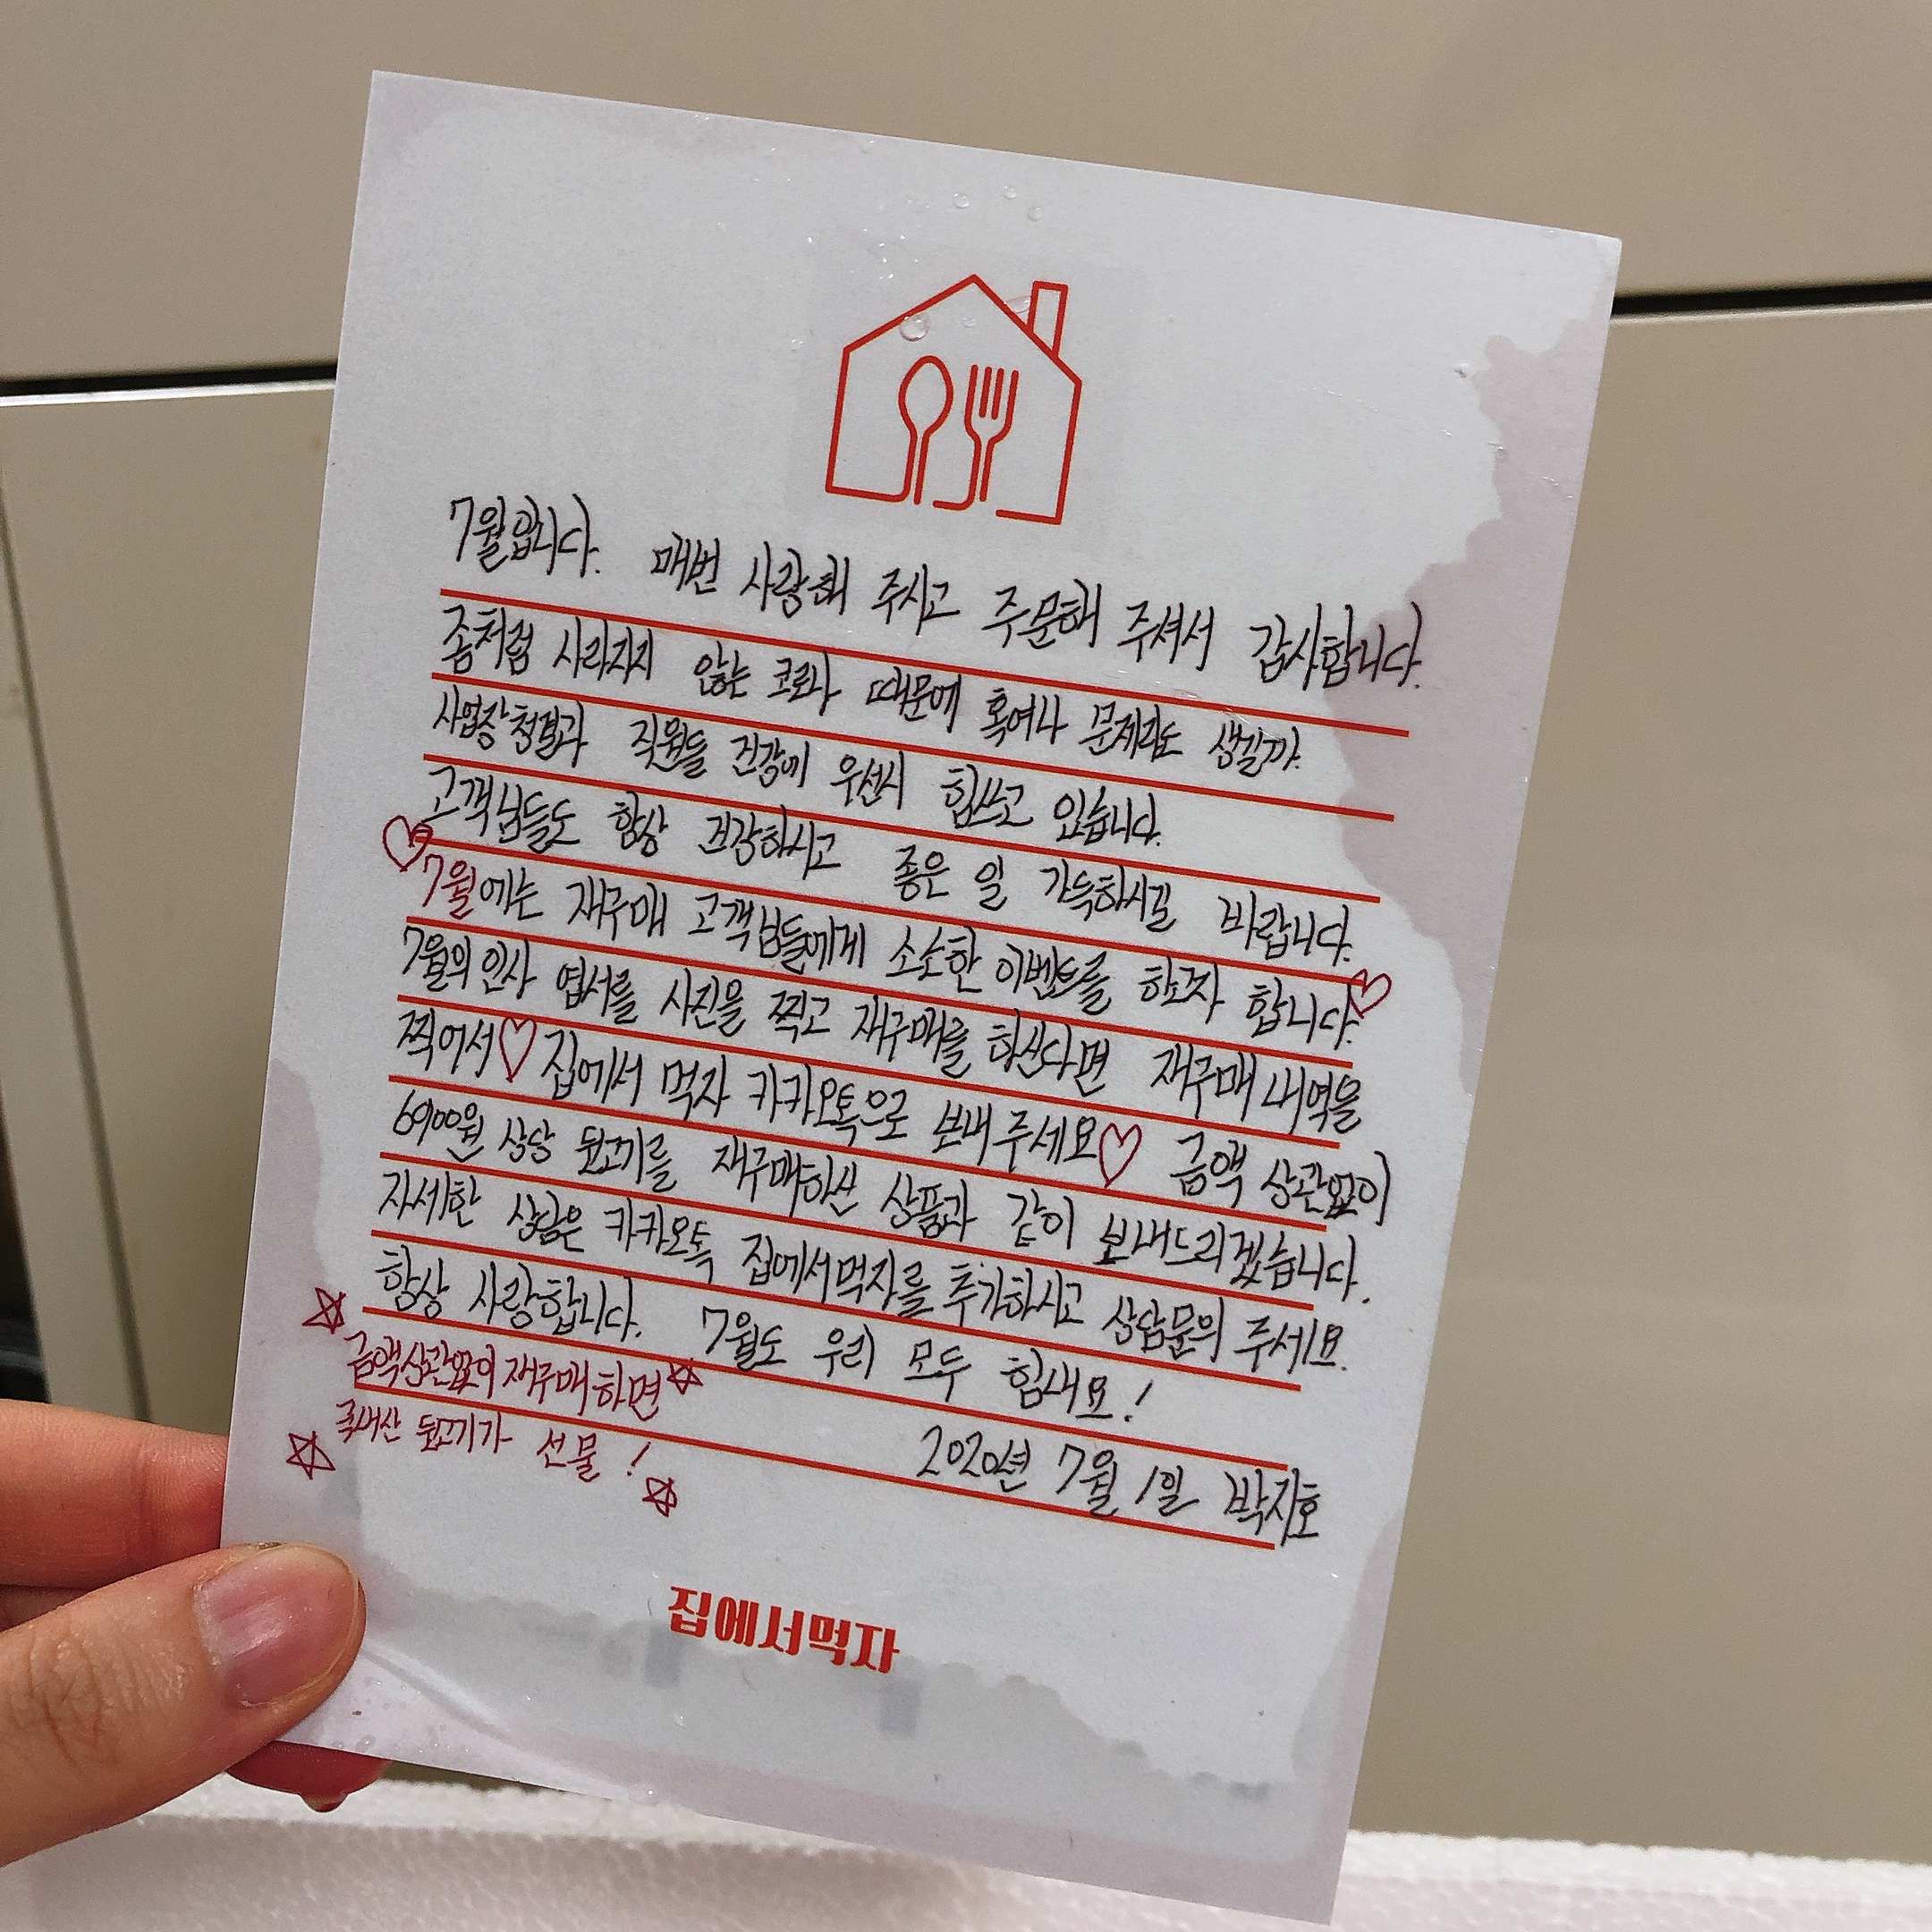 7월입니다. 매번 사랑해 주시고 주문해 주셔서 감사합니다.
좀처럼 사라지지 않는 코로나 때문에 혹여나 문제라도 생길까
사업장청결과 직원들 건강에 우선시 힘쓰고 있습니다.
고객님들도 항상 건강하시고 좋은 일 가득하시길 바랍니다.
♡7월에는 재구매 고객님들에게 소소한 이벤트를 하고자 합니다.♡
7월의 인사 엽서를 사진을 찍고 재구매를 하신다면 재구매 내역을
찍어서♡ 집에서 먹자 카카오톡으로 보내 주세요♡ 금액 상관없이
6900원 상당 뒷고기를 재구매하신 상품과 같이 보내드리겠습니다.
자세한 상담은 카카오톡 집에서먹자를 추가하시고 상담문의 주세요.
항상 사랑합니다. 7월도 우리 모두 힘내요!
☆금액상관없이 재구매하면☆
☆국내산 뒷고기가 선물!☆
2020년 7월 1일 박지호
집에서먹자